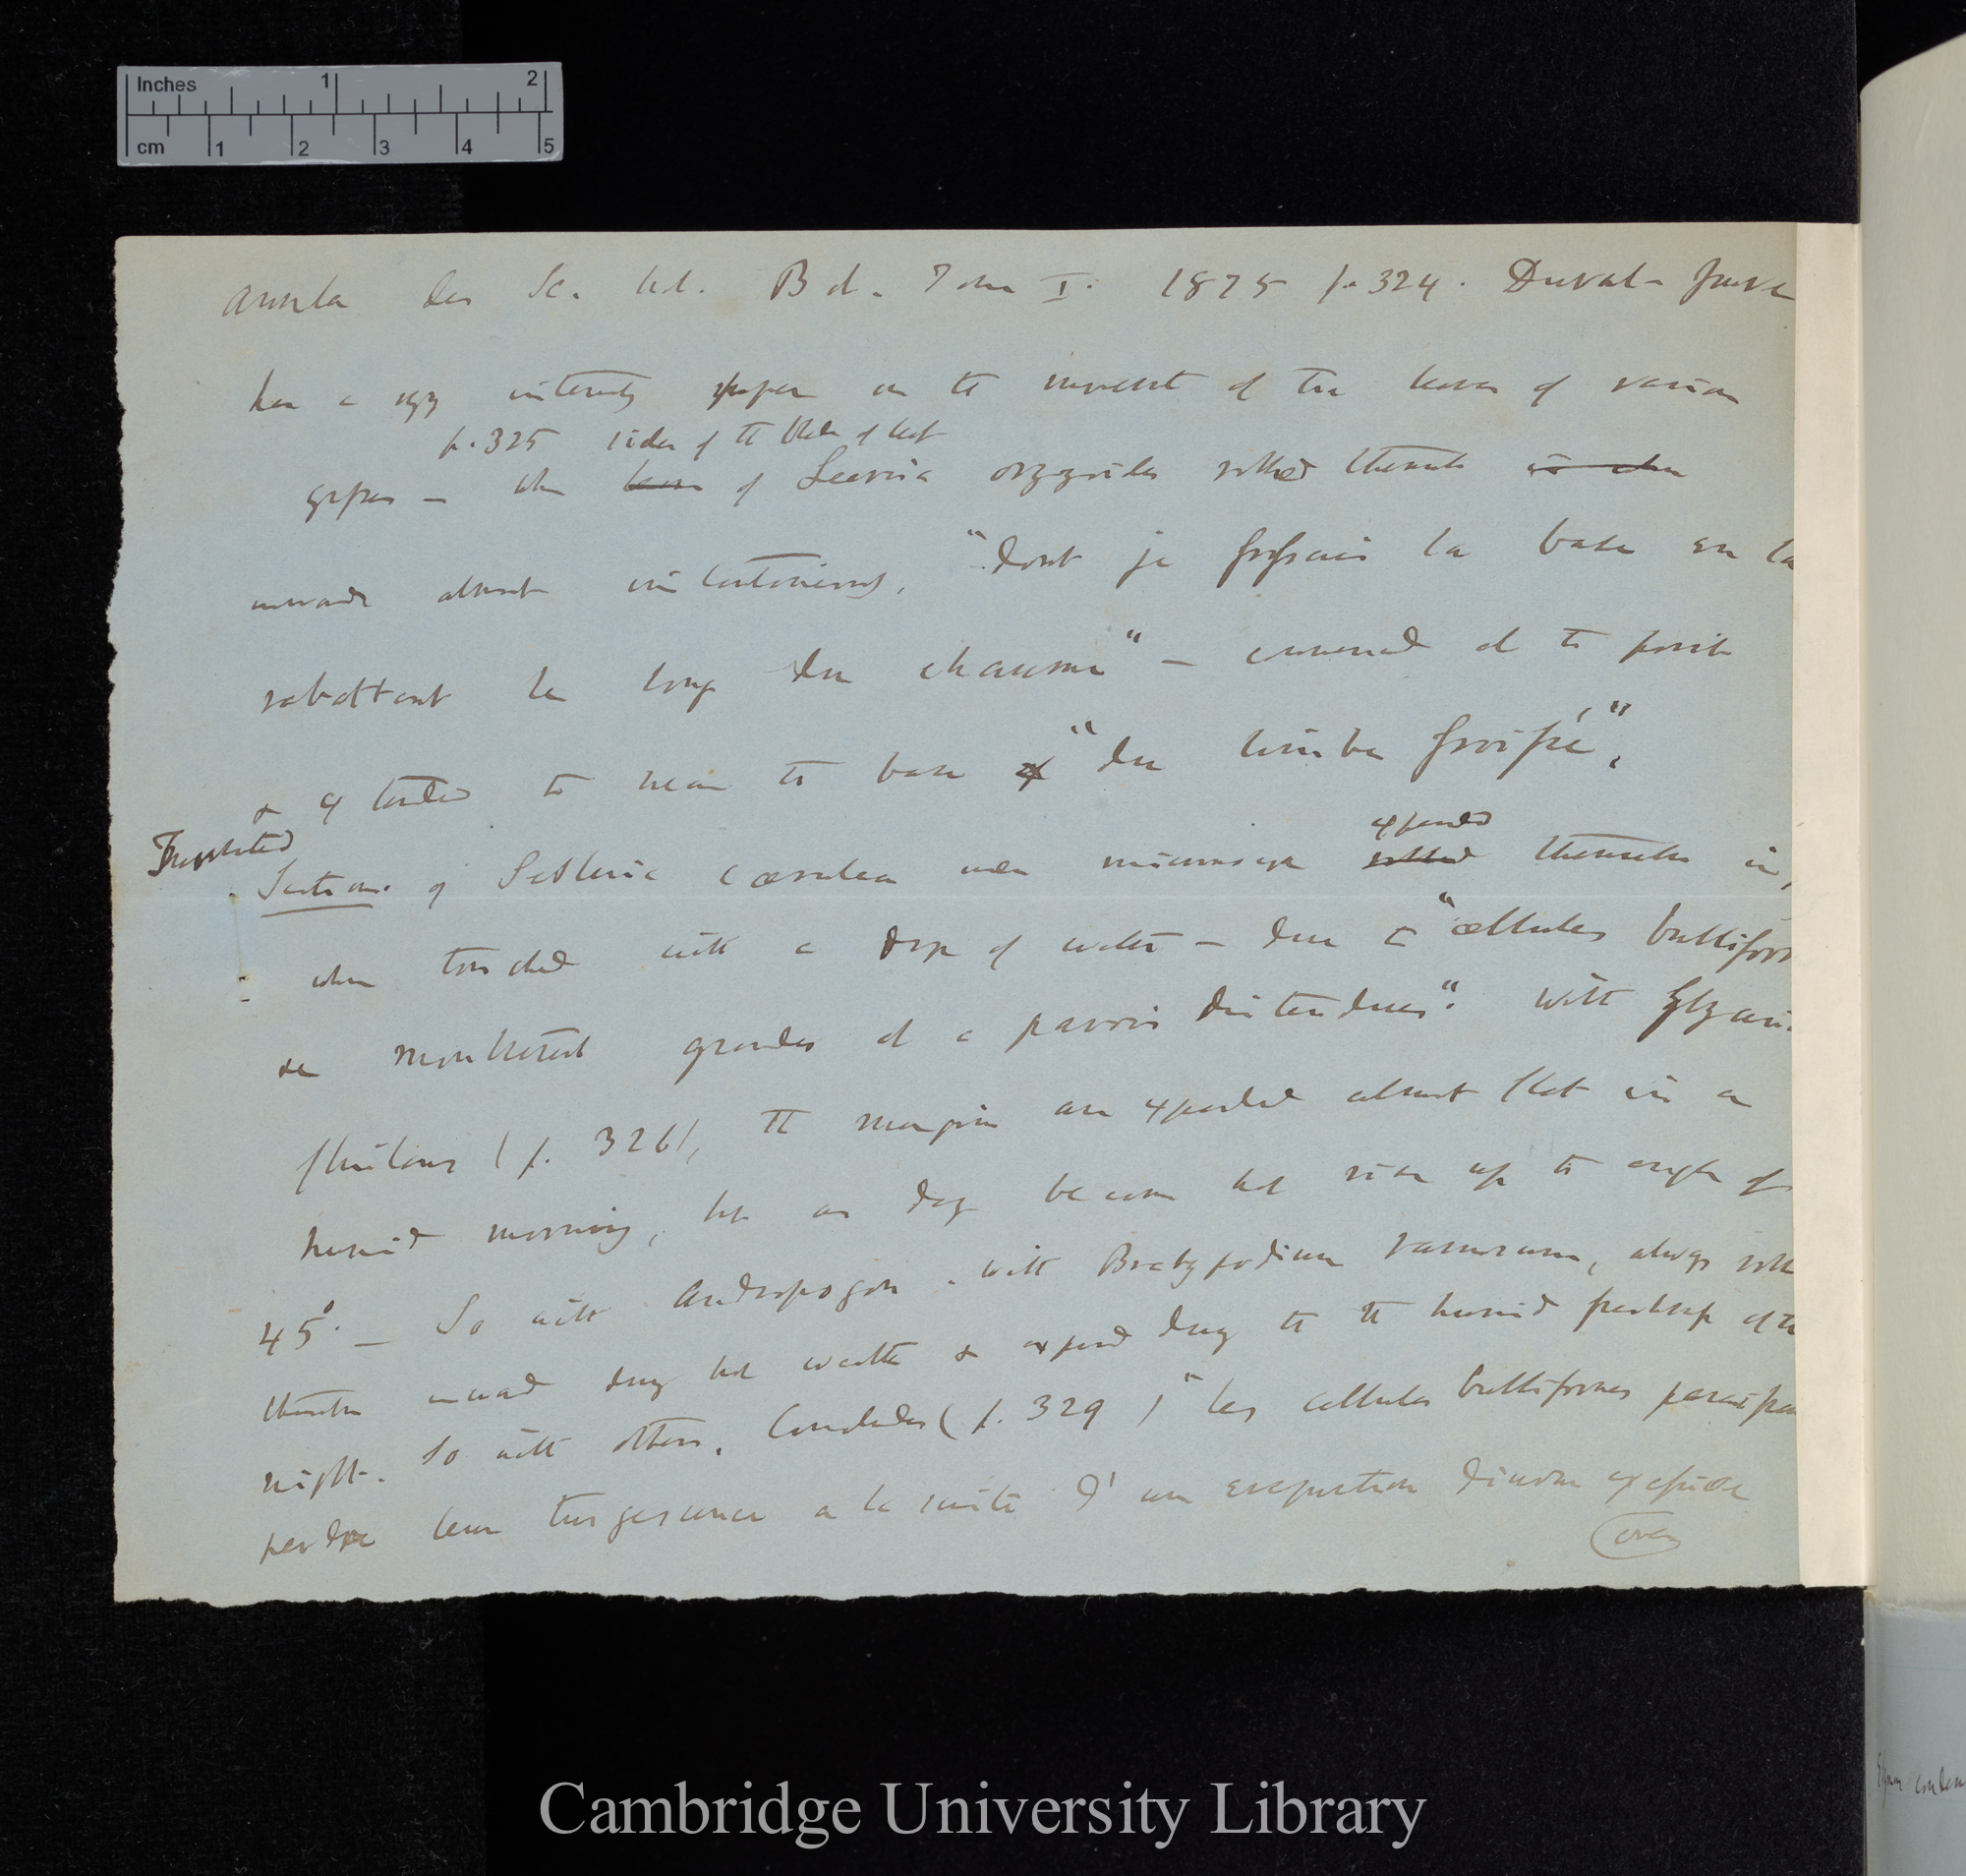 Inches 1 2
cm 1 2 3 4 5
Annales des Sc. Nat. Bot. Tom I. 1875 p. 324. Duval-Jouve
has a very interesting paper on the movement of the leaves of various
p. 325 sides of the blade of leaf
grasses — when leaves of Leersia oryzoides rolled themselves
inwards almost instantaneously, "dont je froissais la base en la
rabattant le long du chaume" — commenced at the point
& extended to near the base of "du limbe froissé".
Sections of Sesleria cærulea under microscope rolled expanded themselves in,
when touched with a drop of water — due to "cellules bulliform
se montrèrent grandes et à parois distendues". With Glyceria
fluitans (p. 326), the margins are expanded almost flat in a
humid morning, but as day become hot rise up to angle of
45°. — So with Andropogon. With Brachypodium ramosum, always roll
themselves inward during hot weather & expand during the humid freshness of the
night. So with others. Concludes (p. 329) "les cellules bulliformes
perdre leur turgescence a la suite d'une evaporation diurne excessive
over
Cambridge University Library